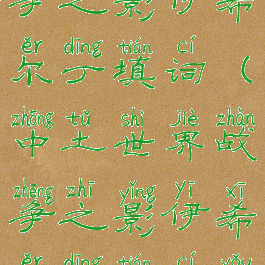 争之影伊希
ěr dīng tián cí
尔丁填词（
zhōng tǔ shì jiè zhàn
中土世界战
zhēng zhī yǐng yī xī
争之影伊希
ěr dīng tián cí yǒu